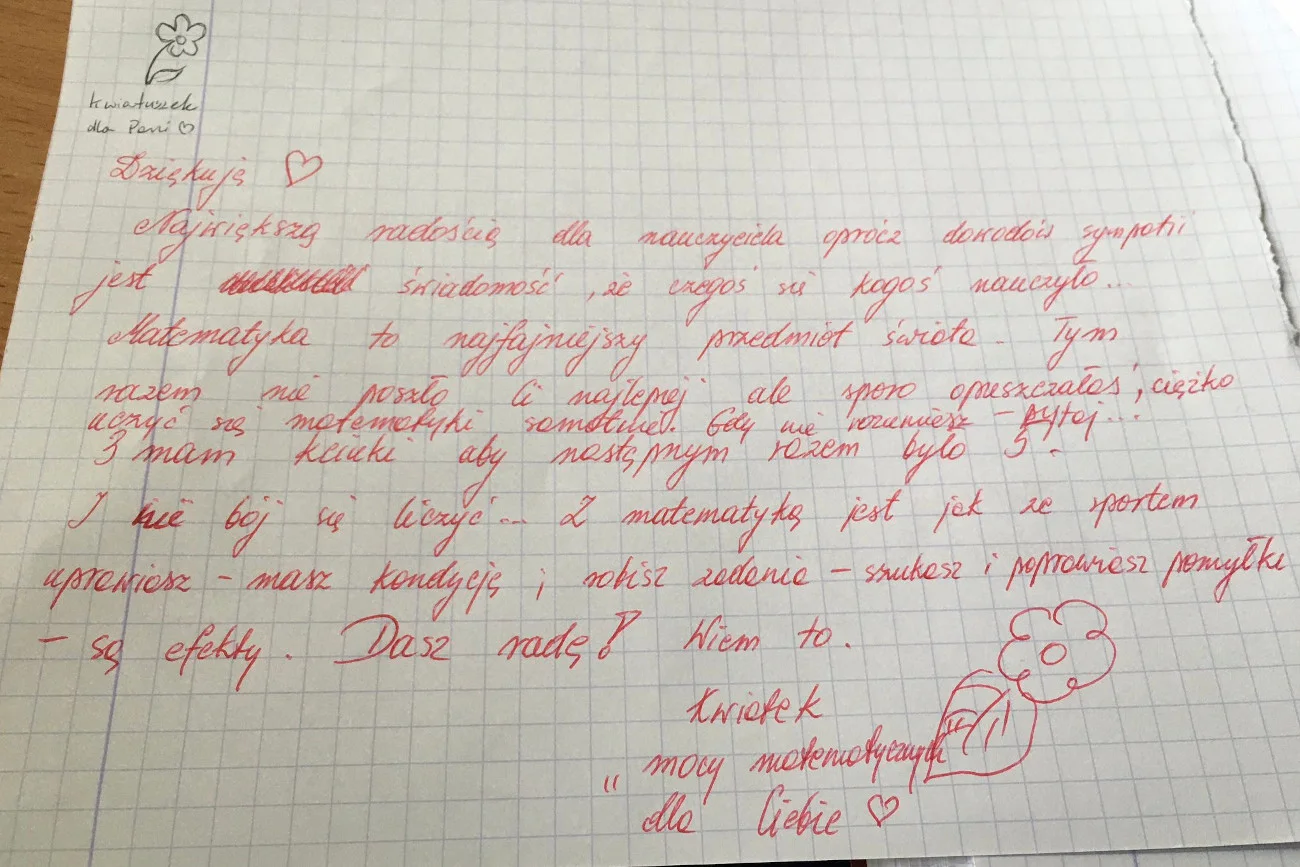 kwiatuszek
dla Pani ♡
Dziękuję ♡
Największą radością dla nauczyciela oprócz dowodów sympatii
jest świadomość, że czegoś się kogoś nauczyło...
Matematyka to najfajniejszy przedmiot świata. Tym
razem nie poszło Ci najlepiej ale sporo opuszczałaś, ciężko
uczyć się matematyki samotnie. Gdy nie rozumiesz – pytaj...
3mam kciuki aby następnym razem było 5.
I nie bój się liczyć... Z matematyką jest jak ze sportem
uprawiasz – masz kondycję i robisz zadania – szukasz i poprawiasz pomyłki
– są efekty. Dasz radę! Wiem to.
Kwiatek
„mocy matematycznych"
dla Ciebie ♡